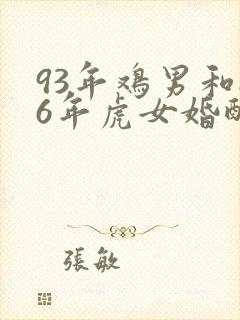 93年鸡男和
6年虎女婚配
張敏